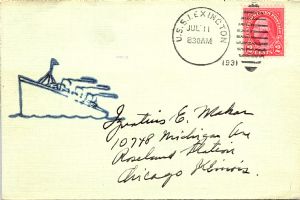 U.S.S. LEXINGTON
JUL 11
830AM
1931
Ignatius E. Mekar
10748 Michigan Ave
Roseland Station
Chicago Illinois.